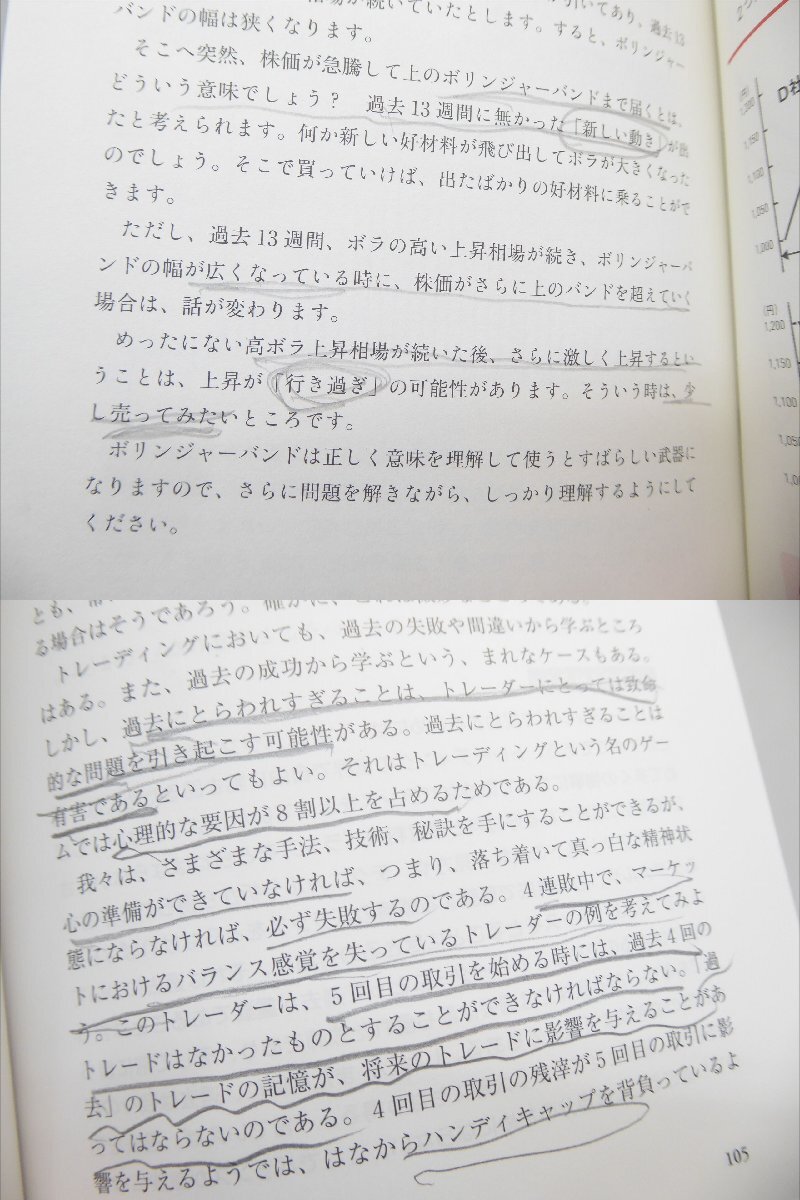 相場が続いていたとします。すると、ボリンジャー
バンドの幅は狭くなります。
そこへ突然、株価が急騰して上のボリンジャーバンドまで届くとは、
どういう意味でしょう？　過去13週間に無かった「新しい動き」が出
たと考えられます。何か新しい好材料が飛び出してボラが大きくなった
のでしょう。そこで買っていけば、出たばかりの好材料に乗ることがで
きます。
ただし、過去13週間、ボラの高い上昇相場が続き、ボリンジャーバ
ンドの幅が広くなっている時に、株価がさらに上のバンドを超えていく
場合は、話が変わります。
めったにない高ボラ上昇相場が続いた後、さらに激しく上昇するとい
うことは、上昇が「行き過ぎ」の可能性があります。そういう時は、少
し売ってみたいところです。
ボリンジャーバンドは正しく意味を理解して使うとすばらしい武器に
なりますので、さらに問題を解きながら、しっかり理解するようにして
ください。
D社
(円)
1,200
1,150
1,100
1,050
1,000
(円)
1,200
1,150
1,100
1,050
る場合はそうであろう。
トレーディングにおいても、過去の失敗や間違いから学ぶところ
はある。また、過去の成功から学ぶという、まれなケースもある。
しかし、過去にとらわれすぎることは、トレーダーにとっては致命
的な問題を引き起こす可能性がある。過去にとらわれすぎることは
有害であるといってもよい。それはトレーディングという名のゲー
ムでは心理的な要因が8割以上を占めるためである。
我々は、さまざまな手法、技術、秘訣を手にすることができるが、
心の準備ができていなければ、つまり、落ち着いて真っ白な精神状
態にならなければ、必ず失敗するのである。4連敗中で、マーケッ
トにおけるバランス感覚を失っているトレーダーの例を考えてみよ
う。このトレーダーは、5回目の取引を始める時には、過去4回の
トレードはなかったものとすることができなければならない。「過
去」のトレードの記憶が、将来のトレードに影響を与えることがあ
ってはならないのである。4回目の取引の残滓が5回目の取引に影
響を与えるようでは、はなからハンディキャップを背負っているよ
105